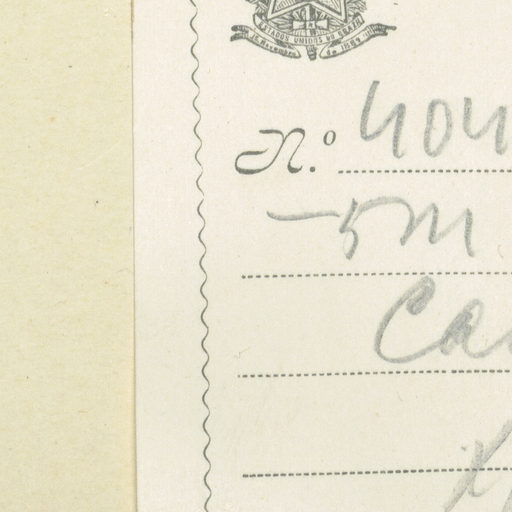 ESTADOS UNIDOS DO BRAZIL
15 de Novembro de 1889
N.º 404
-5m
Ca